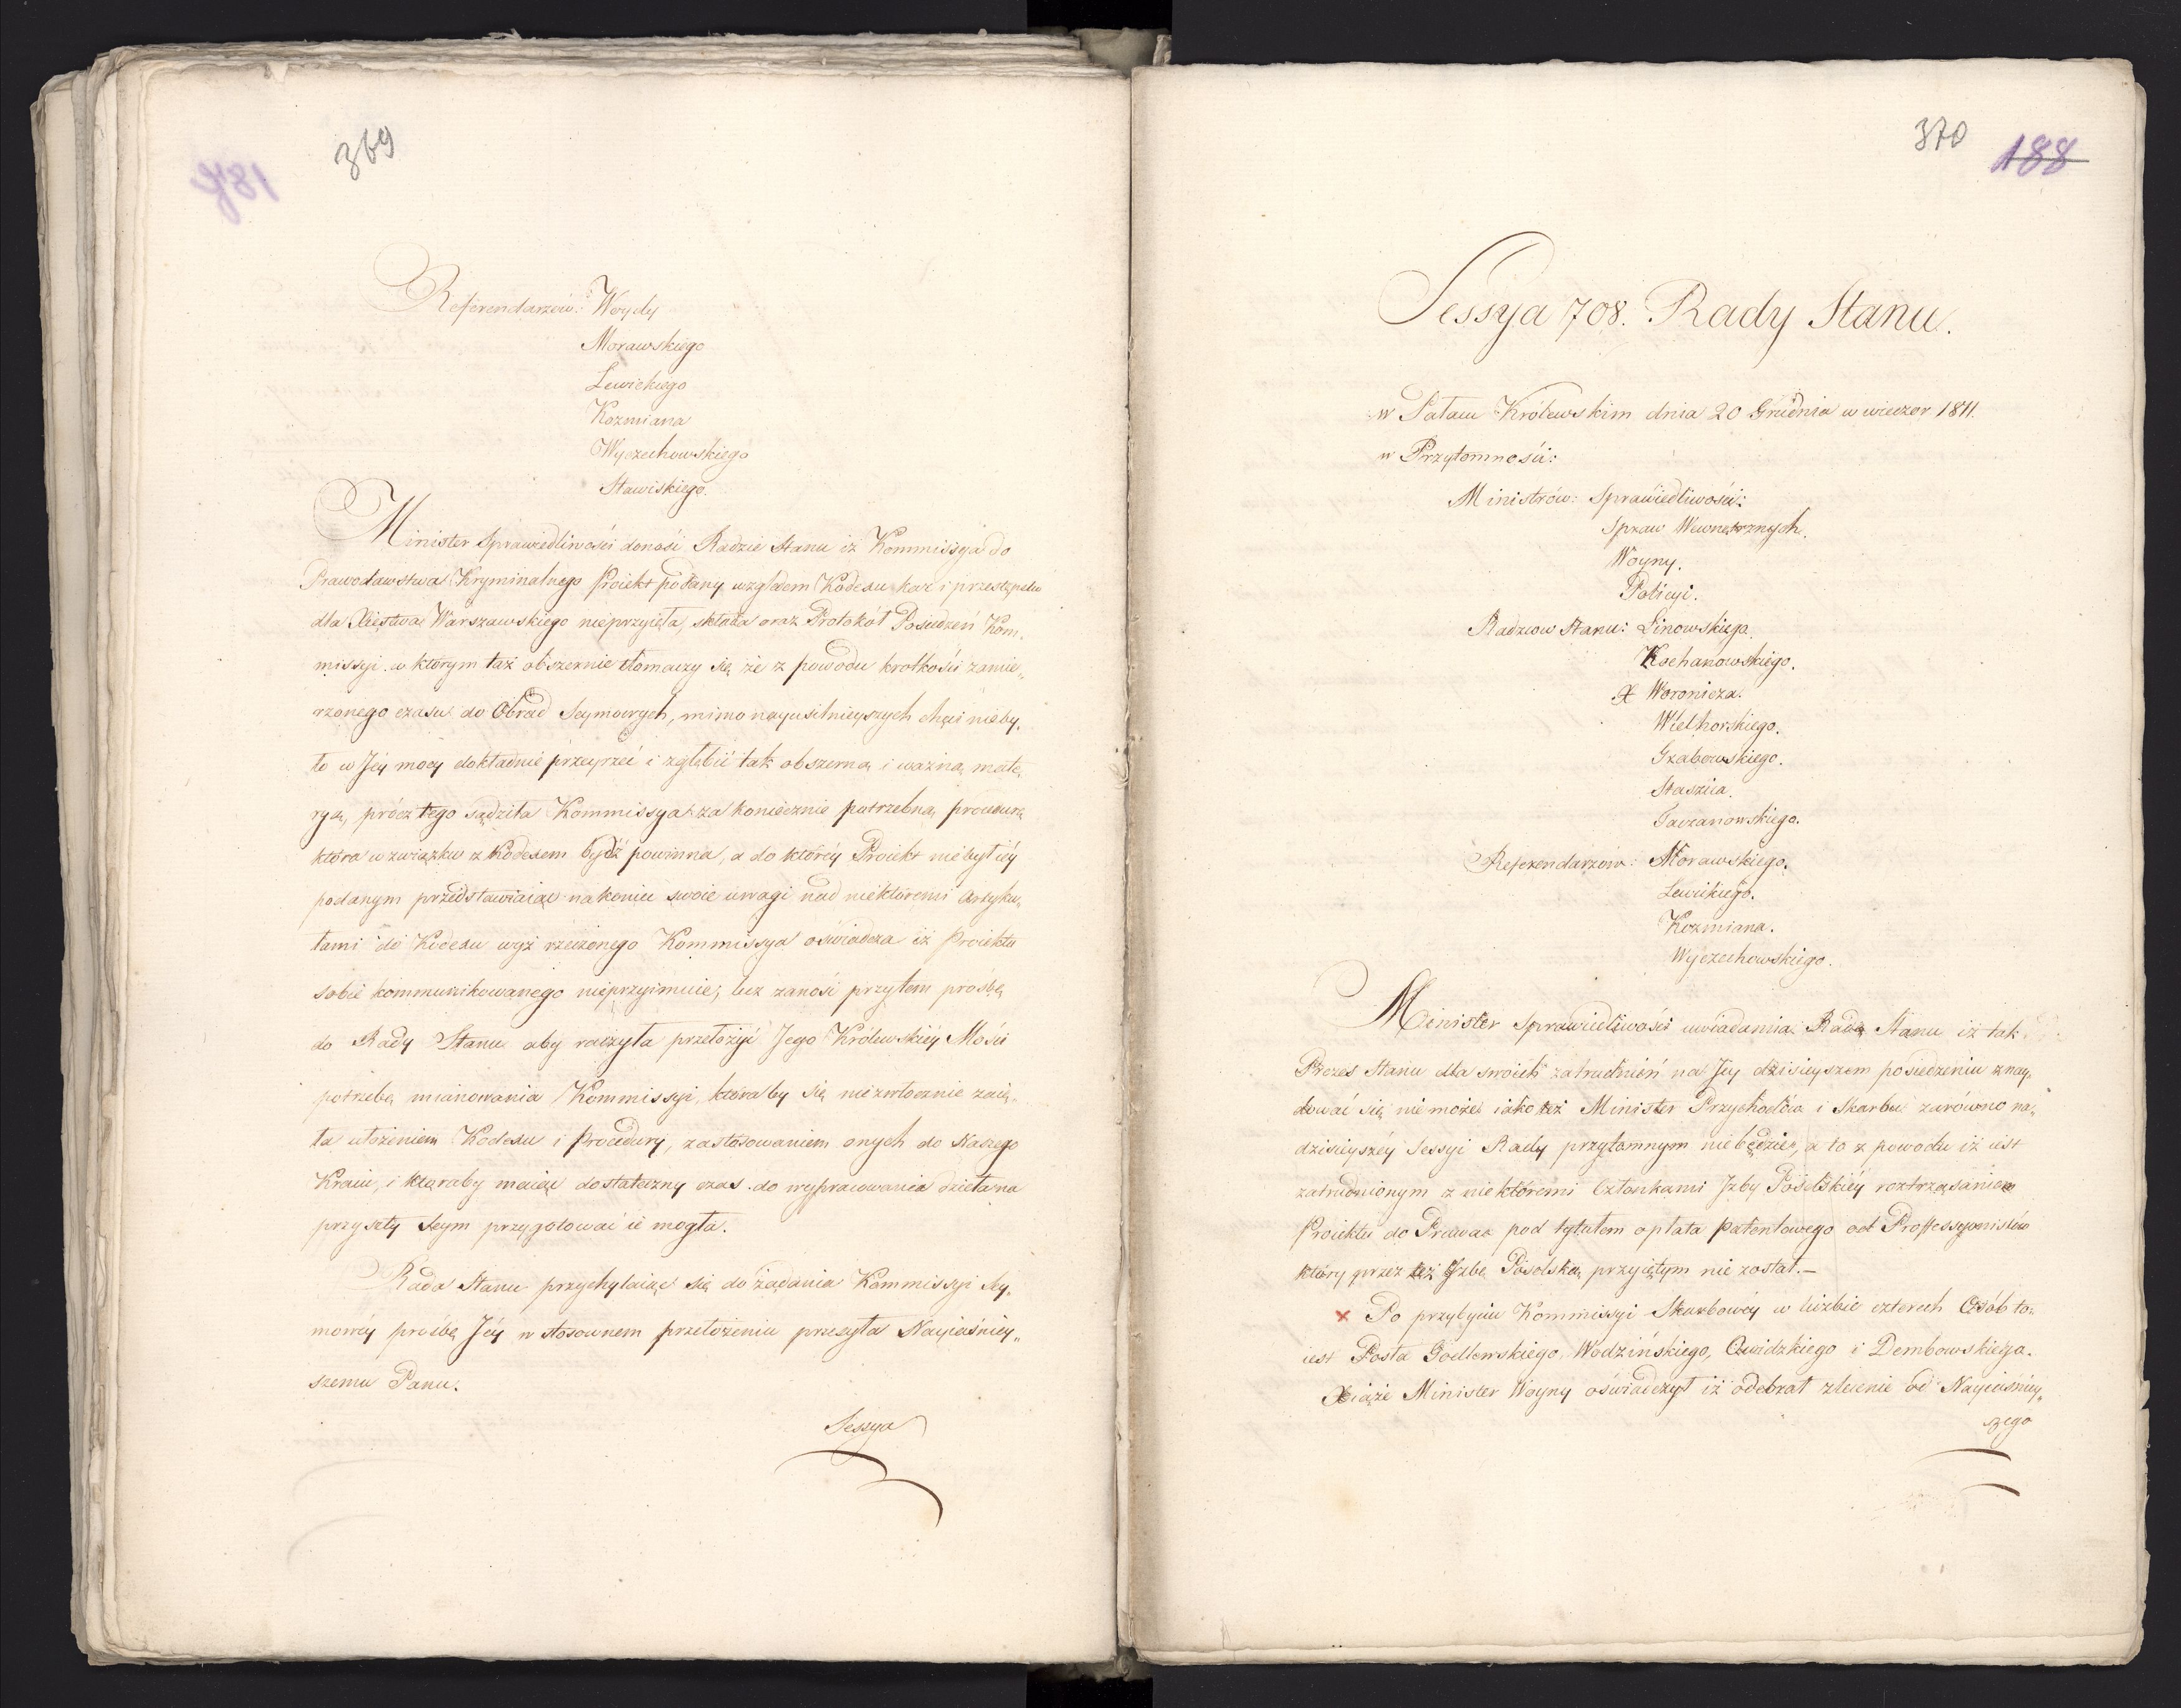 369
Referendarzów: Woydy
Morawskiego
Lewickiego
Kozmiana
Wyczechowskiego
Stawiskiego.
Minister Sprawiedliwości donosi Radzie Stanu iż Kommissya do
Prawodawstwa Kryminalnego Proiekt podany względem Kodexu kar i przestępstw
dla Xięstwa Warszawskiego nieprzyięła, składa oraz Protokół Posiedzeń Kom-
missyi w którym taż obszernie tłomaczy się że z powodu krotkości zamie„
rzonego czasu do Obrad Seymowych, mimo nayusilnieyszych chęci nieby„
ło w Jéy mocy dokładnie przeyrzeć i zgłębić tak obszerną i ważną mate„
ryą, prócz tego sądziła Kommissya za koniecznie potrzebną procedurę
która w związku z Kodexem bydź powinna, a do któréy Proiekt niebył iéy
podanym przedstawiaiąc nakoniec swoie uwagi nad niektóremi Artyku„
łami do Kodexu wyż rzeczonego Kommissya oświadcza iż Proiektu
sobie kommunikowanego nieprzyimuie; lecz zanosi przytem prośbę
do Rady Stanu aby raczyła przełożyć Jego Królewskiéy Mości
potrzebę mianowania Kommissyi, któraby się niezwłocznie zaię„
ła ułożeniem Kodexu i Procedury, zastosowaniem onych do Naszego
Kraiu, i któraby maiąc dostateczny czas do wypracowania dzieła na
przyszły Seym przygotować ie mogła.
Rada Stanu przychylaiąc się do żądania Kommissyi Sey„
mowéy prośbę Jéy w stosownem przełożeniu przesyła Nayiaśniey„
szemu Panu.
Sessya
370
188
Sessya 708. Rady Stanu.
w Pałacu Królewskim dnia 20 Grudnia w wieczor 1811.
w Przytomności:
Ministrów: Sprawiedliwości:
Spraw Wewnętrznych.
Woyny.
Policyi.
Radzców Stanu: Linowskiego.
Kochanowskiego.
X Woronicza.
Wielhorskiego.
Grabowskiego.
Staszica.
Taczanowskiego.
Referendarzów: Morawskiego.
Lewickiego.
Kozmiana.
Wyczechowskiego.
Minister Sprawiedliwości uwiadamia Radę Stanu iż tak
Prezes Stanu dla swoich zatrudnień na Jey dzisieyszem posiedzeniu znay„
dować się nie może iako też Minister Przychodów i Skarbu zarówno na„
dzisieyszéy Sessyi Rady przytomnym nie będzie, a to z powodu iż iest
zatrudnionym z niektóremi Członkami Jzby Poselskiéy roztrząsaniem
Proiektu do Prawa pod tytułem opłata Patentowego od Proffessyonistów
który przez też Jzbę Poselską przyiętym nie został.—
x Po przybyciu Kommissyi Skarbowéy w liczbie czterech Osób to„
iest Posła Godlewskiego, Wodzińskiego, Cywidzkiego i Dembowskiego.
Xiąże Minister Woyny oświadczył iż odebrał zlecenie od Nayiaśniey„
szego